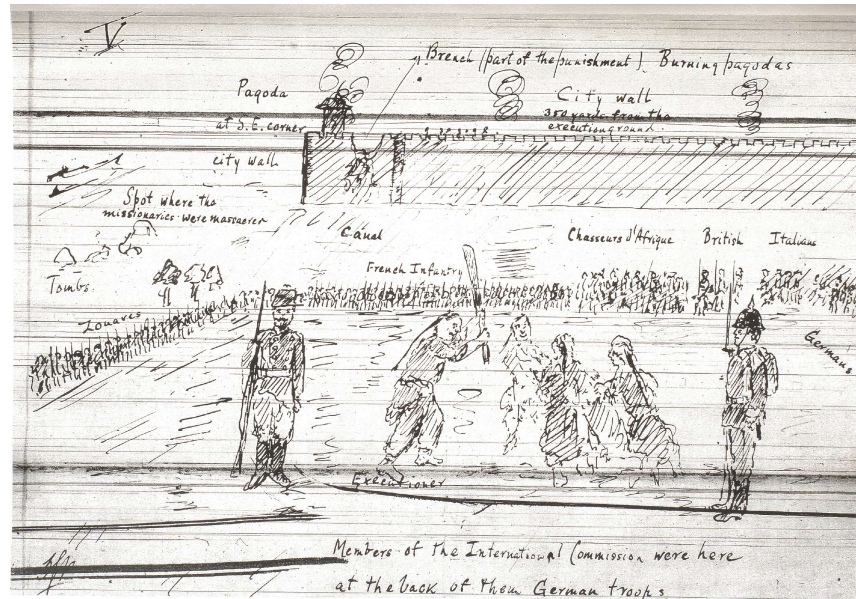 V
Breach (part of the punishment). Burning pagodas
Pagoda
at S.E. corner
city wall
City wall
350 yards from the
execution ground.
Spot where the
missionaries were massacred
Canal
Chasseurs d'Afrique
British
Italians
French Infantry
Tombs.
Zouaves
Germans
Executioner
Members of the International Commission were here
at the back of them German troops